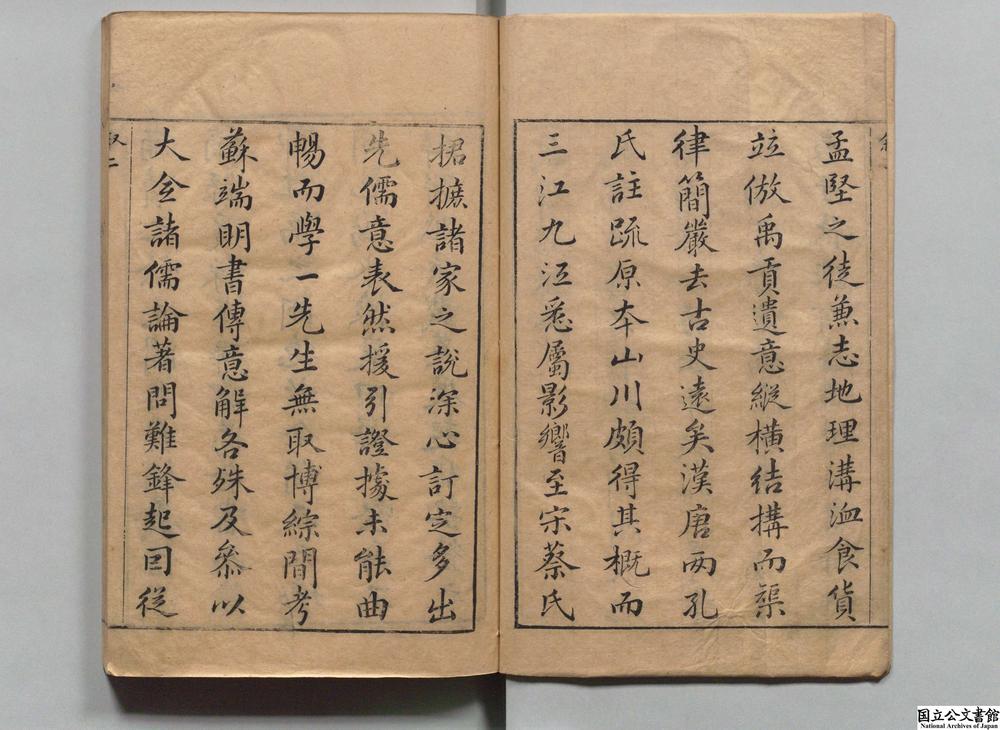 孟堅之徒兼志地理溝洫食貨
竝倣禹貢遺意縱橫結搆而榘
律簡嚴去古史遠矣漢唐兩孔
氏註疏原夲山川頗得其概而
三江九江悉屬影響至宋蔡氏
捃摭諸家之說深心訂定多出
先儒意表然援引證據未能曲
暢而學一先生無取博綜間考
蘇端明書傳意解各殊及叅以
大全諸儒論著問難鋒起囙從
叙二
国立公文書館
National Archives of Japan